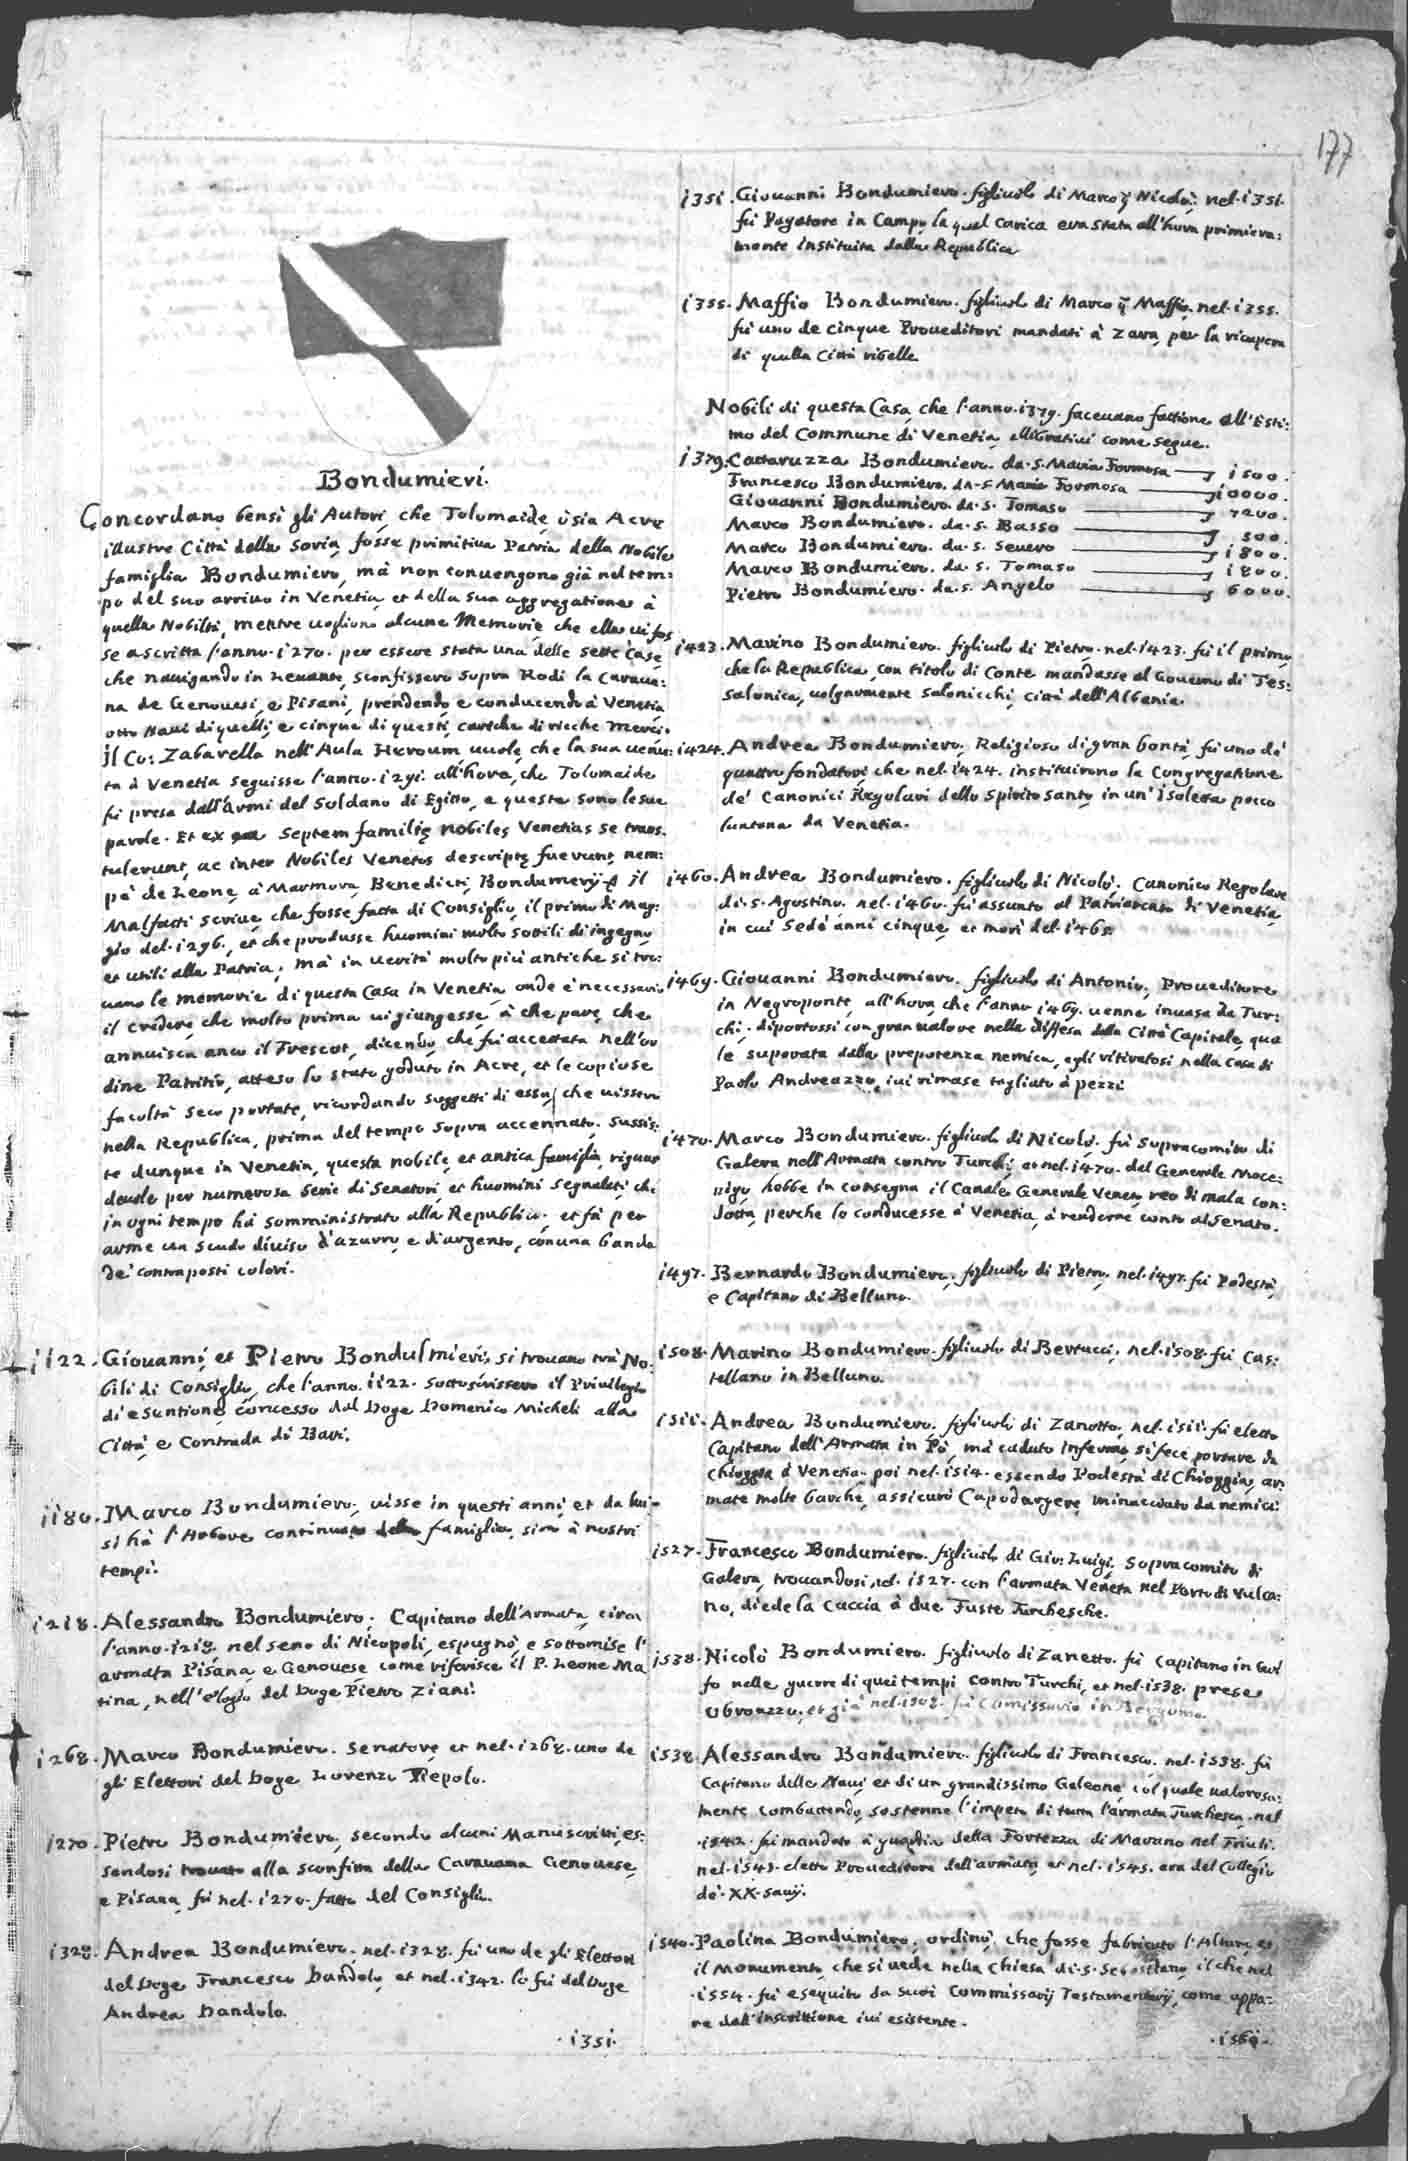 177
Bondumieri.
Concordano bensi gli Autori, che Tolomaide, ò sia Acre
illustre Città della Soria, fosse primitiua Patria della Nobile
famiglia Bondumiero, mà non conuengono già nel tem:
po del suo arriuo in Venetia, et della sua aggregatione à
quella Nobiltà, mentre uogliono alcune Memorie, che ella ui fos
se ascritta l'anno. i270. per essere stata una delle sette Case,
che nauigando in Leuante, sconfissero sopra Rodi la Caraua:
na de Genouesi, e Pisani, prendendo e conducendo à Venetia
otto Naui di quelli, e cinque di questi, cariche di ricche Merci.
Il Co: Zabarella nell'Aula Heroum uuole, che la sua uenu:
ta à Venetia seguisse l'anno. i29i. all'hora, che Tolomaide
fù presa dall'Armi del Soldano di Egitto, e queste sono le sue
parole. Et ex ea septem familię nobiles Venetias se trans.
tulerunt, ac inter Nobiles Venetos descriptę fuerunt, nem:
pè de Leone, à Marmora, Benedicti, Bondumerij. Il
Malfatti scriue, che fosse fatta di Consiglio, il primo di Mag:
gio del. i296., et che produsse huomini molto sottili di ingegno,
et utili alla Patria. Mà in uerità molto più antiche si tro:
uano le memorie di questa Casa in Venetia, onde è necessario
il credere, che molto prima ui giungesse, à che pare, che
annuisca anco il Frescot, dicendo, che fù accettata nell'or
dine Patritio, atteso lo stato goduto in Acre, et le copiose
facoltà seco portate, ricordando soggetti di essa, che uissero
nella Republica, prima del tempo sopra accennato. Sussis:
te dunque in Venetia, questa nobile, et antica famiglia, riguar
deuole per numerosa serie di Senatori, et huomini segnalati, che
in ogni tempo hà somministrato alla Republica. et fà per
arme un scudo diuiso d'azurro, e d'argento, con una banda
de' contraposti colori.
ii22. Giouanni, et Pietro Bondulmieri, si trouano trà No:
bili di Consiglio, che l'anno. ii22. sottoscrissero il Priuilegio
di esentione, concesso dal Doge Domenico Micheli alla
Città, e Contrada di Bari.
ii80. Marco Bondumiero, uisse in questi anni, et da lui
si hà l'Arbore continuato della famiglia, sino à nostri
tempi.
i218. Alessandro Bondumiero. Capitano dell'Armata, circa
l'anno. i218. nel seno di Nicopoli, espugnò, e sottomise l'
armata Pisana e Genouese come riferisce il P. Leone Ma
tina, nell'elogio del Doge Pietro Ziani.
i268. Marco Bondumiero. Senatore, et nel. i268. uno de
gli Elettori del Doge Lorenzo Tiepolo.
i270. Pietro Bondumiero, secondo alcuni Manuscritti, es:
sendosi trouato alla sconfitta della Carauana Genouese,
e Pisana, fù nel. i270. fatto del Consiglio.
i328. Andrea Bondumiero, nel. i328. fù uno de gli Elettori
del Doge Francesco Dandolo, et nel. i342. lo fù del Doge
Andrea Dandolo.
. i35i.
i35i. Giouanni Bondumiero. figliuolo di Marco q Nicolò. nel. i35i.
fù Pagatore in Campo, la qual Carica era stata all'hora primiera:
mente instituita dalla Republica.
i355. Maffio Bondumiero. figliuolo di Marco q Maffio, nel. i355.
fù uno de cinque Proueditori mandati à Zara, per la ricupera
di quella Città ribelle.
Nobili di questa Casa, che l'anno. i379. faceuano fattione all'Esti:
mo del Commune di Venetia, allibratiui come segue.
i379. Cattaruzza Bondumiero. da. S. Maria Formosa i500.
Francesco Bondumiero. da. S. Maria Formosa i0000.
Giouanni Bondumiero. da. S. Tomaso 7200.
Marco Bondumiero. da. S. Basso 500.
Marco Bondumiero. da. S. Seuero i800.
Marco Bondumiero. da. S. Tomaso i800.
Pietro Bondumiero. da. S. Angelo 6000.
i423. Marino Bondumiero. figliuolo di Pietro. nel. i423. fù il primo,
che la Republica, con titolo di Conte mandasse al Gouerno di Tes:
salonica, uolgarmente Salonicchi, città dell'Albania.
i424. Andrea Bondumiero. Religioso di gran bontà, fù uno de'
quattro fondatori che nel. i424. instituirono la Congregatione
de' Canonici Regolari dello Spirito Santo, in un'Isoletta pocco
lontana da Venetia.
i460. Andrea Bondumiero. figliuolo di Nicolò. Canonico Regolare
di. S. Agostino. nel. i460. fù assunto al Patriarcato di Venetia,
in cui sedè anni cinque, et morì del. i465.
i469. Giouanni Bondumiero. figliuolo di Antonio, Proueditore
in Negroponte, all'hora, che l'anno i469. uenne inuasa da Tur:
chi. diportossi con gran ualore nella diffesa della Città Capitale, qua
le superata dalla prepotenza nemica, egli ritiratosi nella Casa di
Paolo Andreazzo, iui rimase tagliato à pezzi.
i470. Marco Bondumiero. figliuolo di Nicolò. fù Sopracomito di
Galera nell'Armata contro Turchi, et nel. i470. dal Generale Moce:
nigo, hebbe in consegna il Canale Generale Veneto, reo di mala con:
dotta, perche lo conducesse à Venetia, à renderne conto al Senato.
i497. Bernardo Bondumiero. figliuolo di Pietro, nel. i497. fù Podestà,
e Capitano di Belluno.
i508. Marino Bondumiero. figliuolo di Bertucci, nel. i508. fù Cas:
tellano in Belluno.
i5ii. Andrea Bondumiero. figliuolo di Zanotto, nel. i5ii. fù eletto
Capitano dell'Armata in Pò, mà caduto infermo, si fece portare da
Chioggia à Venetia. poi nel. i5i4. essendo Podestà di Chioggia, ar:
mate molte barche, assicurò Capodargere, minacciato da nemici.
i527. Francesco Bondumiero. figliuolo di Gio: Luigi, Sopracomito di
Galera, trouandosi, nel. i527. con l'armata Veneta nel Porto di Vulca:
no, diede la Caccia à due Fuste Turchesche.
i538. Nicolò Bondumiero. figliuolo di Zanetto. fù Capitano in Gol
fo nelle guerre di quei tempi contro Turchi, et nel. i538. prese
Obroazzo. et già nel. i508. fù Comissario in Bergomo.
i538. Alessandro Bondumiero. figliuolo di Francesco. nel. i538. fù
Capitano delle Naui, et di un grandissimo Galeone, col quale ualorosa:
mente combattendo, sostenne l'impeto di tutta l'armata Turchesca. nel
. i542. fù mandato à guardia della Fortezza di Marano nel Friuli.
nel. i543. eletto Proueditore dell'armata, et nel. i545. era del Collegio
de'. XX. Sauij.
i540. Paolina Bondumiero, ordinò, che fosse fabricato l'Altare, et
il Monumento, che si uede nella Chiesa di. S. Sebastiano, il che nel
. i554. fù esequito da suoi Commissarij Testamentarij, come appa:
re dall'inscrittione iui esistente.
. i560.